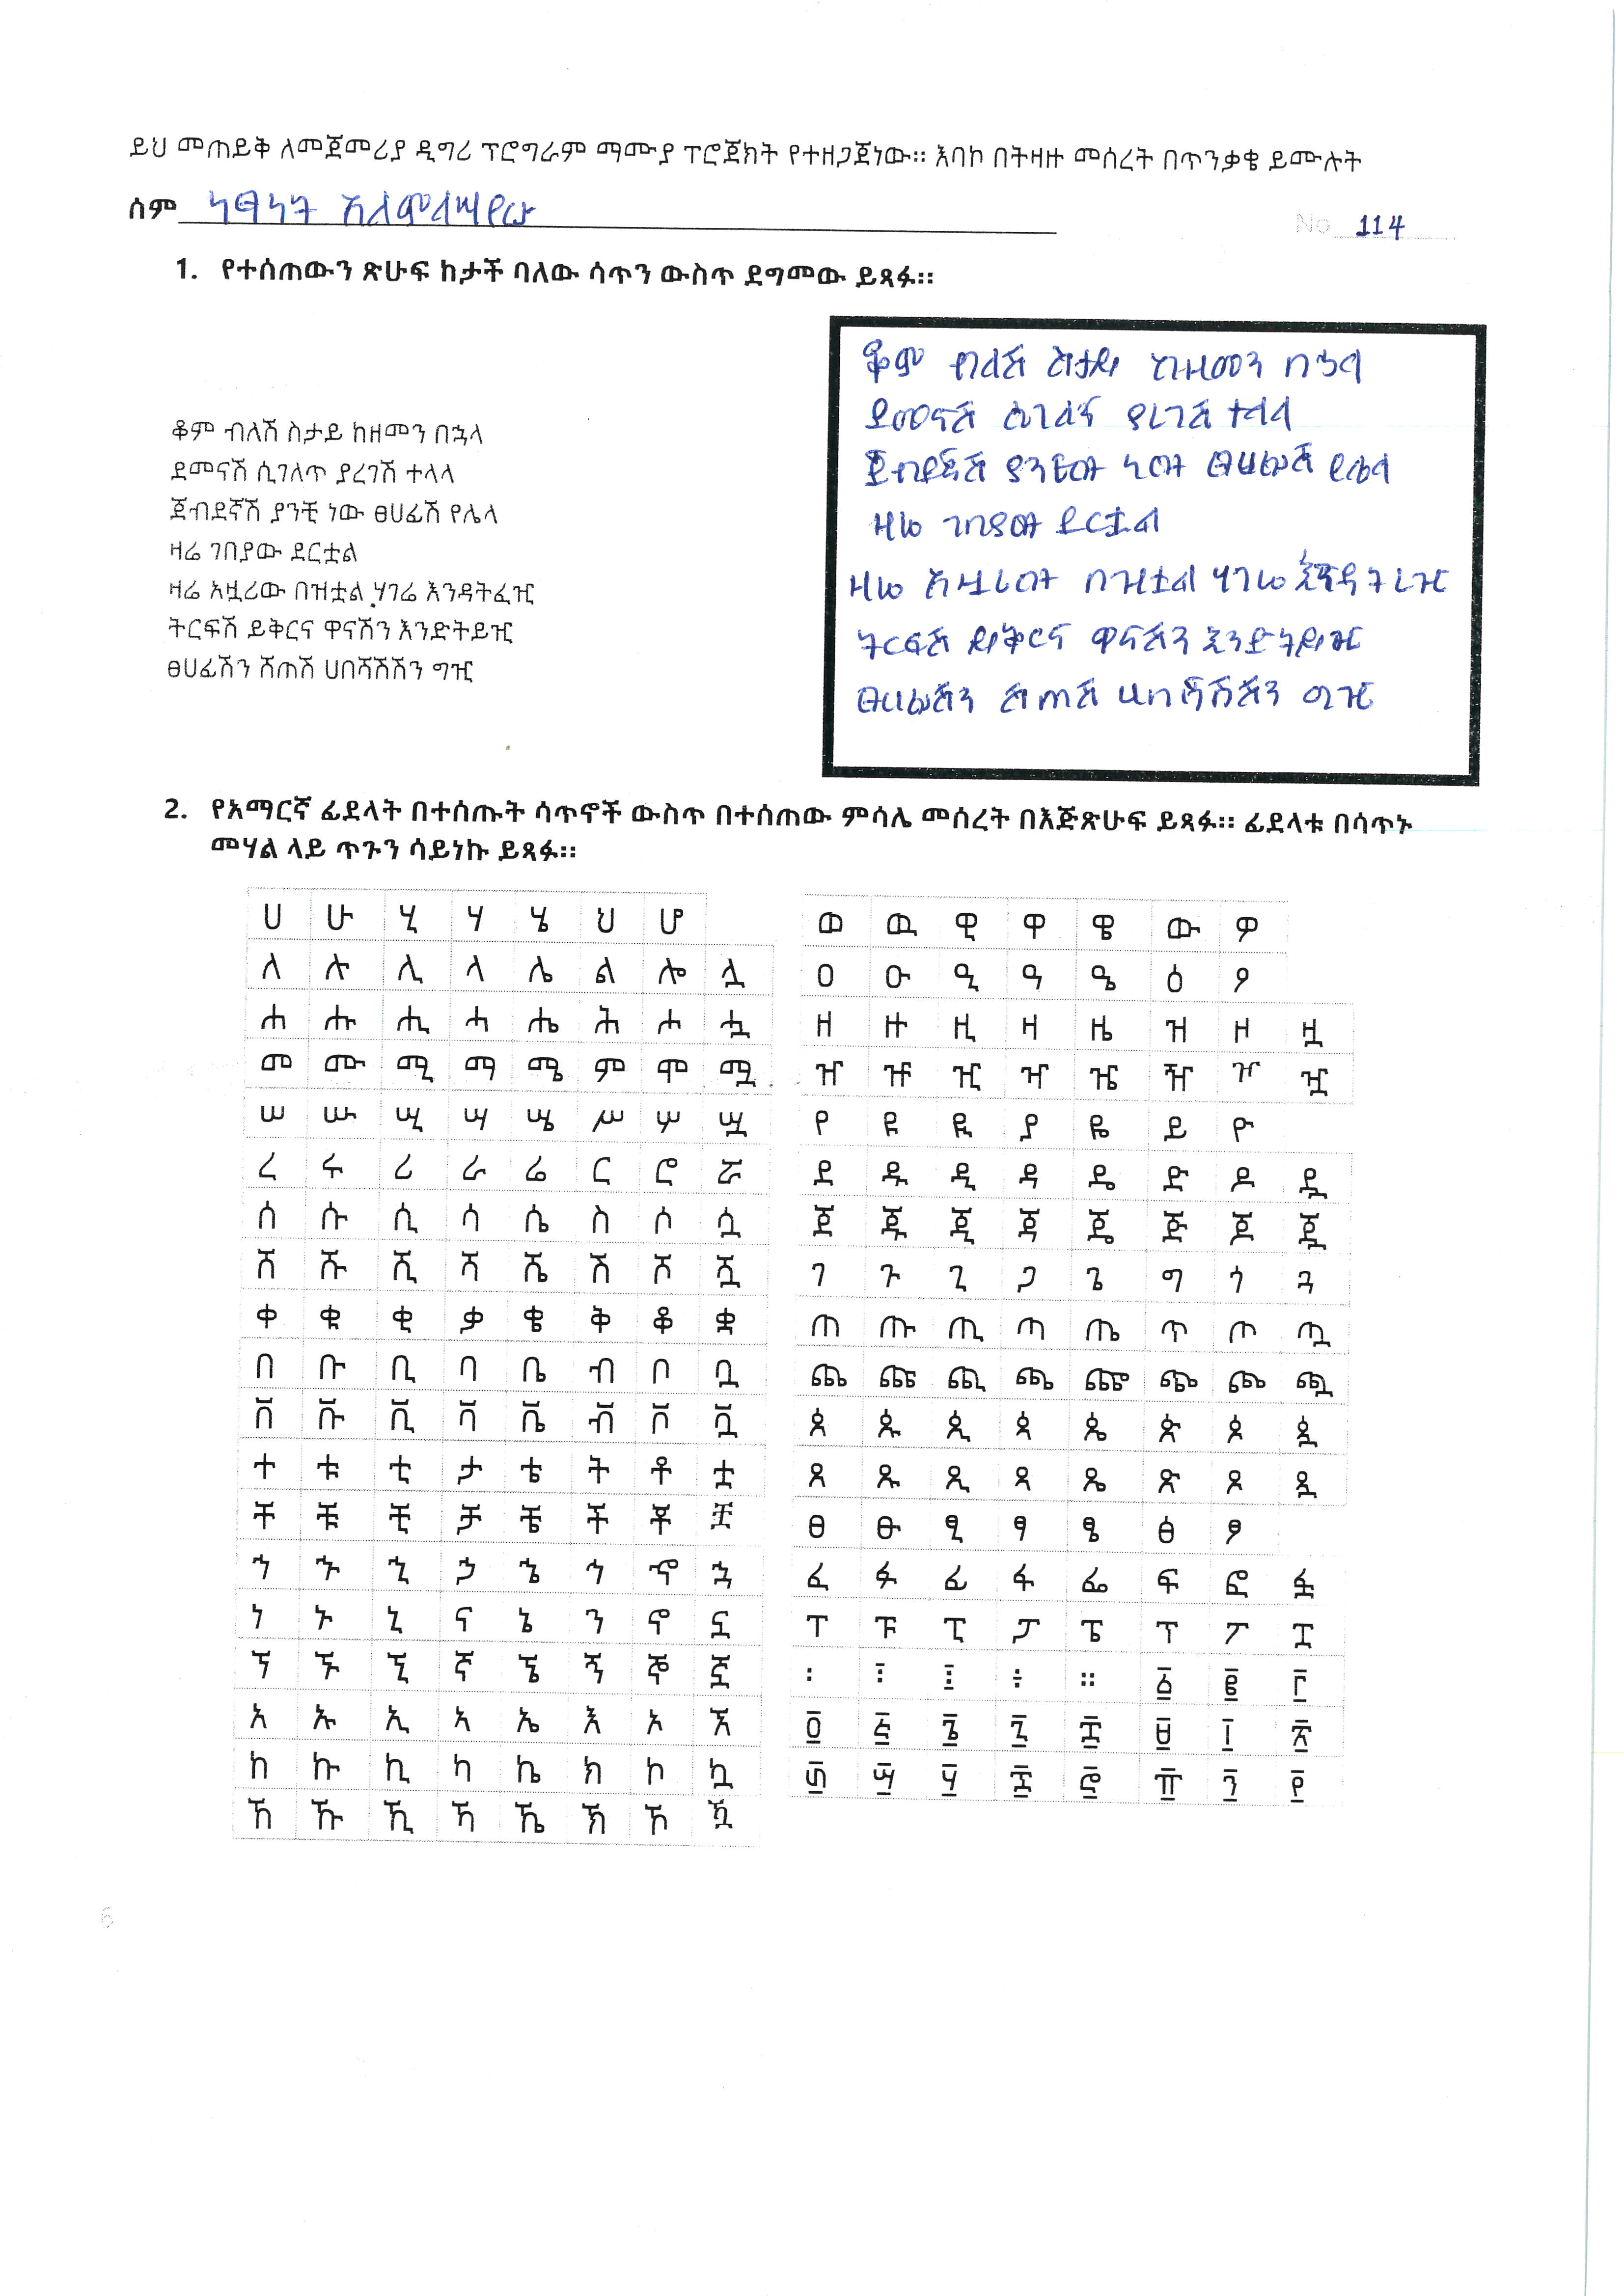 ይህ መጠይቅ ለመጀመሪያ ዲግሪ ፕሮግራም ማሙያ ፕሮጀክት የተዘጋጀነው። እባኮ በትዛዙ መሰረት በጥንቃቄ ይሙሉት
ስም ነፃነት አለምላሣየሁ
No 114
1. የተሰጠውን ጽሁፍ ከታች ባለው ሳጥን ውስጥ ደግመው ይጻፉ።
ቆም ብለሽ ስታይ ከዘመን በኋላ
ደመናሽ ሲገለጥ ያረገሽ ተላላ
ጀብደኛሽ ያንቺ ነው ፀሀፊሽ የሌላ
ዛሬ ገበያው ደርቷል
ዛሬ አዟሪው በዝቷል ሃገሬ እንዳትፈዢ
ትርፍሽ ይቅርና ዋናሽን እንድትይዢ
ፀሀፊሽን ሸጠሽ ሀበሻሽሽን ግዢ
ቆም ብለሽ ስታይ ከዘመን በኃላ
ደመናሽ ሲገለጥ ያረገሽ ተላላ
ጀብደኛሽ ያንቺው ነው ፀሀፊሽ የሌላ
ዛሬ ገበያው ደርቷል
ዛሬ አዟሪው በዝቷል ሃገሬ እንዳትፈዢ
ትርፍሽ ይቅርና ዋናሽን እንድትይዢ
ፀሀፊሽን ሽጠሽ ሀበሻሽሽን ግዢ
2. የአማርኛ ፊደላት በተሰጡት ሳጥኖች ውስጥ በተሰጠው ምሳሌ መሰረት በእጅጽሁፍ ይጻፉ። ፊደላቱ በሳጥኑ
መሃል ላይ ጥጉን ሳይነኩ ይጻፉ።
ሀ ሁ ሂ ሃ ሄ ህ ሆ
ለ ሉ ሊ ላ ሌ ል ሎ ሏ
ሐ ሑ ሒ ሓ ሔ ሕ ሖ ሗ
መ ሙ ሚ ማ ሜ ም ሞ ሟ
ሠ ሡ ሢ ሣ ሤ ሥ ሦ ሧ
ረ ሩ ሪ ራ ሬ ር ሮ ሯ
ሰ ሱ ሲ ሳ ሴ ስ ሶ ሷ
ሸ ሹ ሺ ሻ ሼ ሽ ሾ ሿ
ቀ ቁ ቂ ቃ ቄ ቅ ቆ ቋ
በ ቡ ቢ ባ ቤ ብ ቦ ቧ
ቨ ቩ ቪ ቫ ቬ ቭ ቮ ቯ
ተ ቱ ቲ ታ ቴ ት ቶ ቷ
ቸ ቹ ቺ ቻ ቼ ች ቾ ቿ
ኀ ኁ ኂ ኃ ኄ ኅ ኆ ኋ
ነ ኑ ኒ ና ኔ ን ኖ ኗ
ኘ ኙ ኚ ኛ ኜ ኝ ኞ ኟ
አ ኡ ኢ ኣ ኤ እ ኦ ኧ
ከ ኩ ኪ ካ ኬ ክ ኮ ኳ
ኸ ኹ ኺ ኻ ኼ ኽ ኾ ዃ
ወ ዉ ዊ ዋ ዌ ው ዎ
ዐ ዑ ዒ ዓ ዔ ዕ ዖ
ዘ ዙ ዚ ዛ ዜ ዝ ዞ ዟ
ዠ ዡ ዢ ዣ ዤ ዥ ዦ ዧ
የ ዩ ዪ ያ ዬ ይ ዮ
ደ ዱ ዲ ዳ ዴ ድ ዶ ዷ
ጀ ጁ ጂ ጃ ጄ ጅ ጆ ጇ
ገ ጉ ጊ ጋ ጌ ግ ጎ ጓ
ጠ ጡ ጢ ጣ ጤ ጥ ጦ ጧ
ጨ ጩ ጪ ጫ ጬ ጭ ጮ ጯ
ጰ ጱ ጲ ጳ ጴ ጵ ጶ ጷ
ጸ ጹ ጺ ጻ ጼ ጽ ጾ ጿ
ፀ ፁ ፂ ፃ ፄ ፅ ፆ
ፈ ፉ ፊ ፋ ፌ ፍ ፎ ፏ
ፐ ፑ ፒ ፓ ፔ ፕ ፖ ፗ
፡ ፤ ፧ ፥ ። ፩ ፪ ፫
፬ ፭ ፮ ፯ ፰ ፱ ፲ ፳
፴ ፵ ፶ ፷ ፸ ፹ ፺ ፻
6